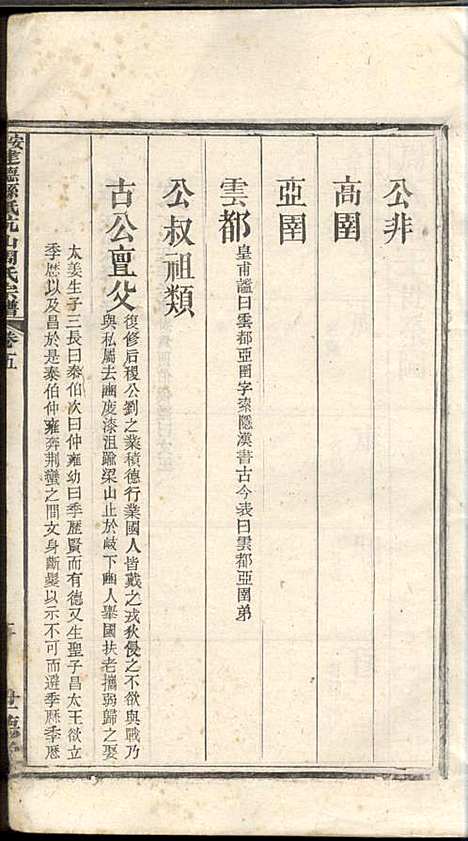 公非
高圉
亞圉
雲都皇甫謐曰雲都亞圉字索隱漢書古今表曰雲都亞圉弟
公叔祖類
古公亶父復修后稷公劉之業積德行業國人皆戴之戎狄侵之不欲與戰乃
與私屬去豳度漆沮踰梁山止於岐下豳人舉國扶老攜弱歸之娶
太姜生子三長曰泰伯次曰仲雍幼曰季歷賢而有德又生聖子昌太王欲立
季歷以及昌於是泰伯仲雍奔荆蠻之間文身斷髮以示不可而避季歷季歷
建德縣 山周氏宗譜
卷之五